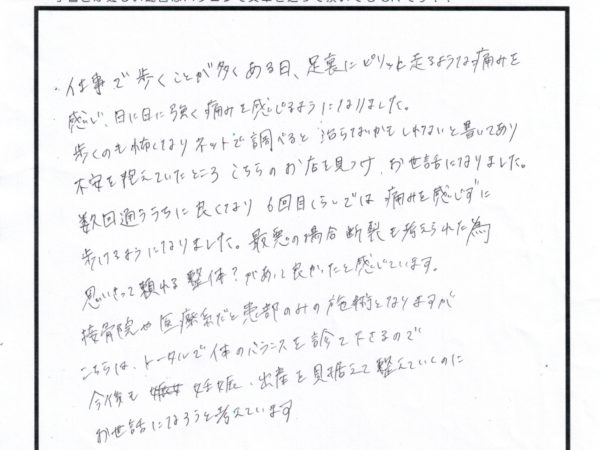 ・仕事で歩くことが多くある日、足裏にピリッと走るような痛みを
感じ、日に日に強く痛みを感じるようになりました。
歩くのも怖くなりネットで調べると治らないかもしれないと書いてあり
不安を抱えていたところこちらのお店を見つけ、お世話になりました。
数回通ううちに良くなり6回目くらいでは痛みを感じずに
歩けるようになりました。最悪の場合断裂も考えられた為
思いきって頼れる整体?があって良かったと感じています。
接骨院や医療系だと患部のみの施術となりますが
こちらは、トータルで体のバランスを診て下さるので
今後も妊娠、出産を見据えて整えていくのに
お世話になろうと考えています